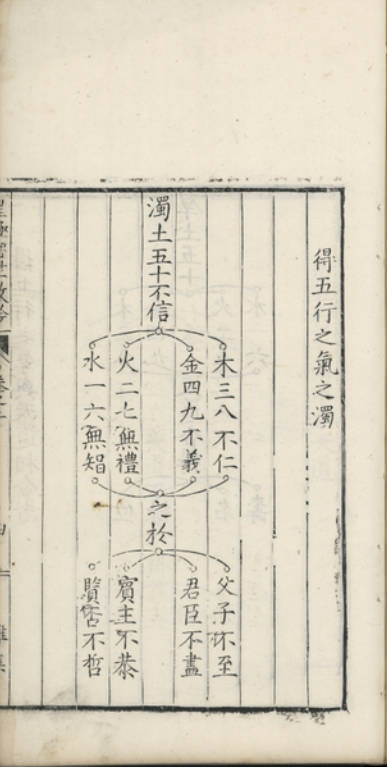 得五行之氣之濁
濁土五十不信
木三八不仁
金四九不義
火二七無禮
水一六無智
之於
父子不至
君臣不盡
賓主不恭
賢否不哲